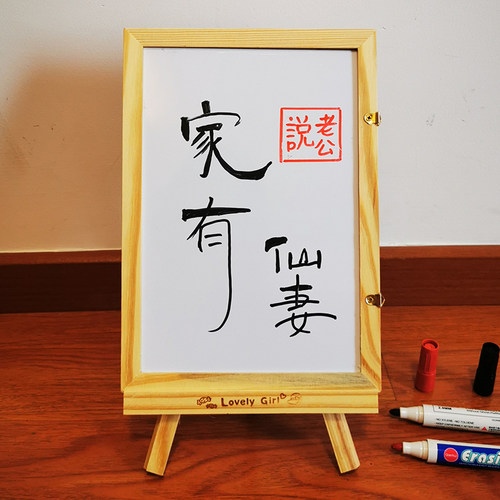 家有
仙妻
老公
説
Lovely Girl
Erasi